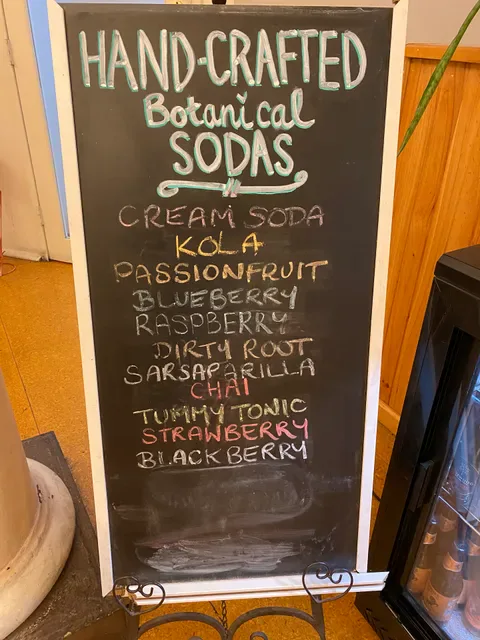 HAND-CRAFTED
Botanical
SODAS
CREAM SODA
KOLA
PASSIONFRUIT
BLUEBERRY
RASPBERRY
DIRTY ROOT
SARSAPARILLA
CHAI
TUMMY TONIC
STRAWBERRY
BLACKBERRY